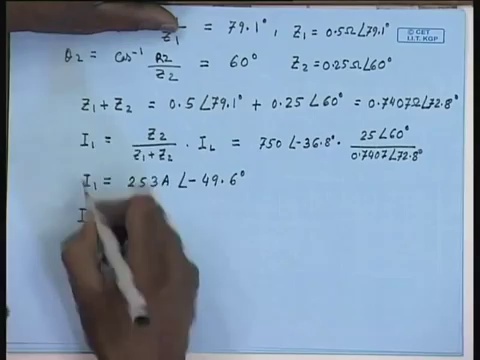 Z₁ = 79.1°, Z₁ = 0.5Ω∠79.1°
© CET
I.I.T. KGP
θ₂ = cos⁻¹ R₂/Z₂ = 60° Z₂ = 0.25Ω∠60°
Z₁ + Z₂ = 0.5∠79.1° + 0.25∠60° = 0.7407Ω∠72.8°
I₁ = Z₂/(Z₁+Z₂) · I_L = 750∠-36.8° · 25∠60°/0.7407∠72.8°
I₁ = 253A∠-49.6°
I